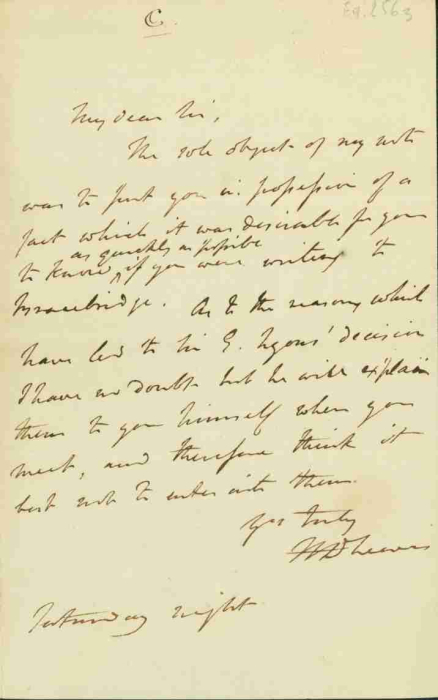 C
Eg. 2563
My dear Sir,
The sole object of my note
was to put you in possession of a
fact which it was desirable for you
as quickly as possible
to know, if you were writing to
Bracebridge. As to the reasons which
have led to Sir E. Lyons' decision
I have no doubt but he will explain
them to you himself when you
meet, and therefore think it
best not to enter into them.
Yrs truly
Saturday night